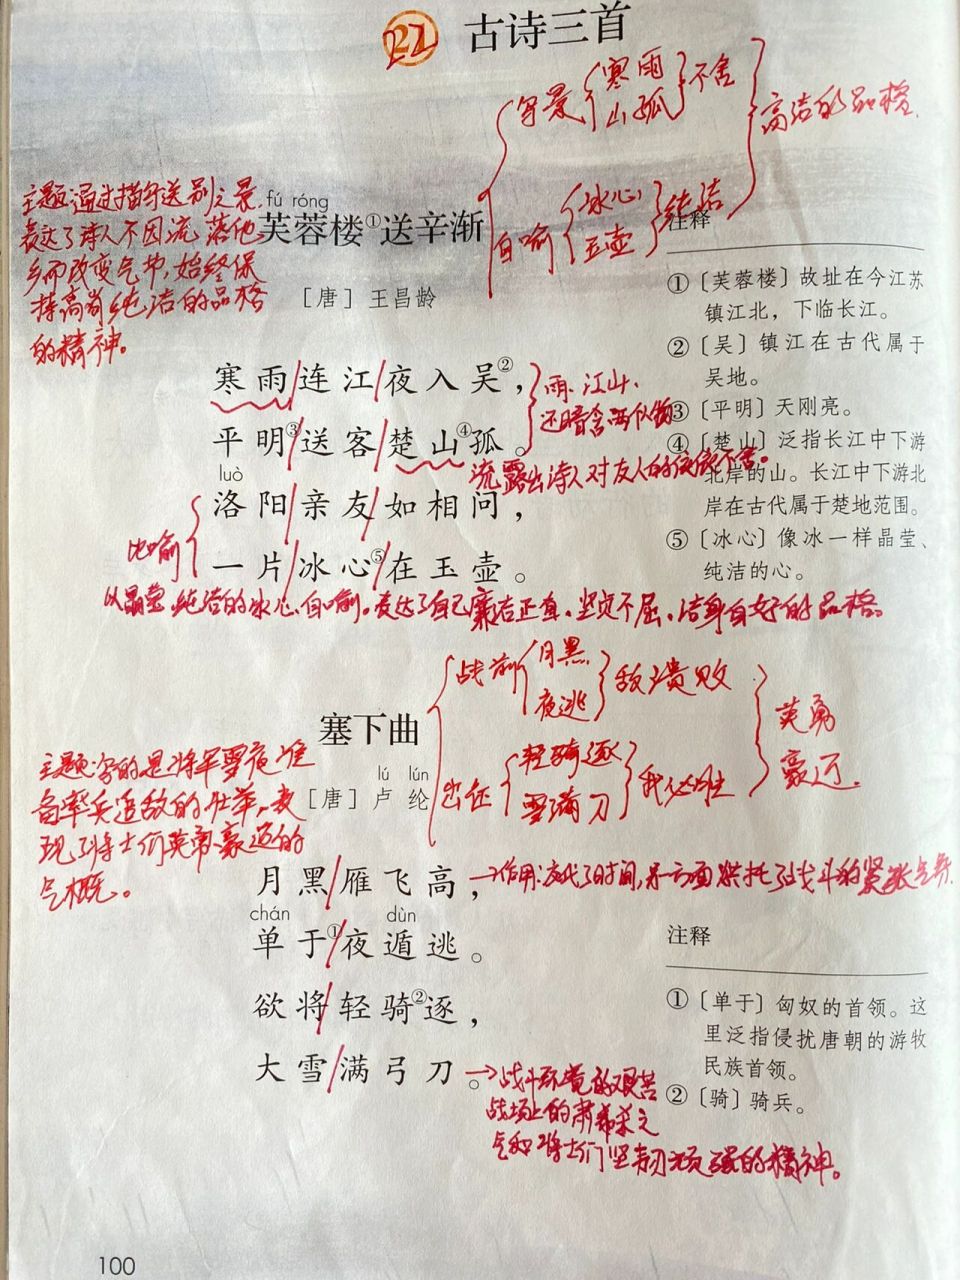 22 古诗三首
写景 寒雨 山孤 不舍
高洁的品格.
自喻 冰心 玉壶 纯洁
主题:通过描写送别之景,
表达了诗人不因流落他
乡而改变气节,始终保
持高尚纯洁的品格
的精神。
fú róng
芙蓉楼①送辛渐
［唐］王昌龄
寒雨/连江/夜入吴②，
平明③/送客/楚山④孤。
luò
洛阳/亲友/如相问，
一片/冰心⑤/在玉壶。
雨、江山、
还暗含两似物
流露出诗人对友人的依依不舍。
比喻
以晶莹.纯洁的冰心.自喻。表达了自己廉洁正直.坚贞不屈.洁身自好的品格。
注释
①〔芙蓉楼〕故址在今江苏
镇江北，下临长江。
②〔吴〕镇江在古代属于
吴地。
③〔平明〕天刚亮。
④〔楚山〕泛指长江中下游
北岸的山。长江中下游北
岸在古代属于楚地范围。
⑤〔冰心〕像冰一样晶莹、
纯洁的心。
战前 月黑 夜逃 敌溃败
英勇
豪迈.
出征 轻骑逐 雪满刀 我必胜
主题:写的是将军雪夜准
备率兵追敌的壮举。表
现了将士们英勇豪迈的
气概。
塞下曲
lú lún
［唐］卢纶
月黑/雁飞高，
→作用:交代了时间,另一方面烘托了战斗的紧张气氛.
chán dùn
单于①/夜遁逃。
欲将/轻骑②逐，
大雪/满弓刀。
→战斗环境的艰苦
战场上的肃杀之
气和将士们坚韧顽强的精神。
注释
①〔单于〕匈奴的首领。这
里泛指侵扰唐朝的游牧
民族首领。
②〔骑〕骑兵。
100